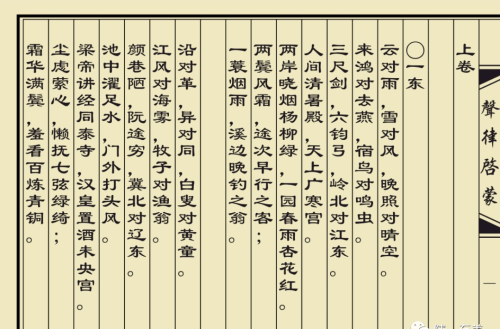 聲律啓蒙
一
上卷
〇一东
云对雨，雪对风，晚照对晴空。
来鸿对去燕，宿鸟对鸣虫。
三尺剑，六钧弓，岭北对江东。
人间清暑殿，天上广寒宫。
两岸晓烟杨柳绿，一园春雨杏花红。
两鬓风霜，途次早行之客；
一蓑烟雨，溪边晚钓之翁。
沿对革，异对同，白叟对黄童。
江风对海雾，牧子对渔翁。
颜巷陋，阮途穷，冀北对辽东。
池中濯足水，门外打头风。
梁帝讲经同泰寺，汉皇置酒未央宫。
尘虑萦心，懒抚七弦绿绮；
霜华满鬓，羞看百炼青铜。